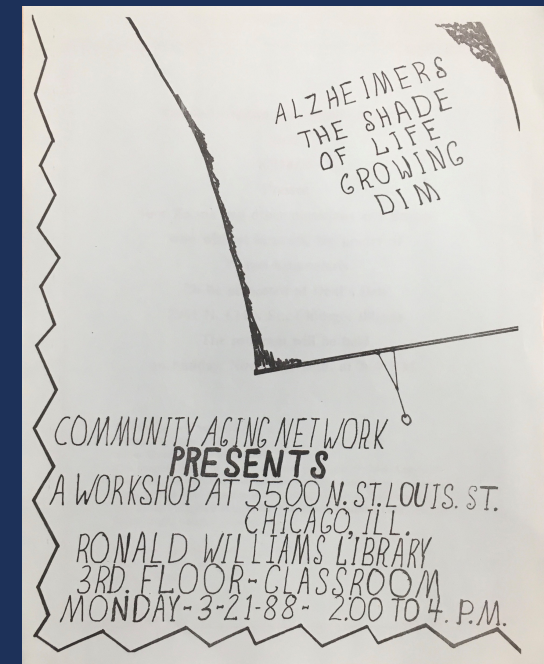 ALZHEIMERS
THE SHADE
OF LIFE
GROWING
DIM
COMMUNITY AGING NETWORK
PRESENTS
A WORKSHOP AT 5500 N. ST. LOUIS. ST.
CHICAGO, ILL.
RONALD WILLIAMS LIBRARY
3RD. FLOOR-CLASSROOM
MONDAY-3-21-88- 2.00 TO 4. P.M.